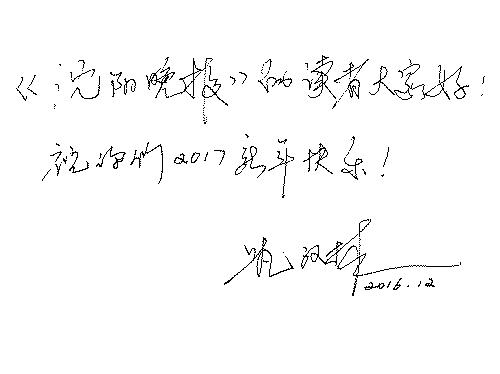 《沈阳晚报》的读者大家好!
祝你们2017新年快乐!
2016.12